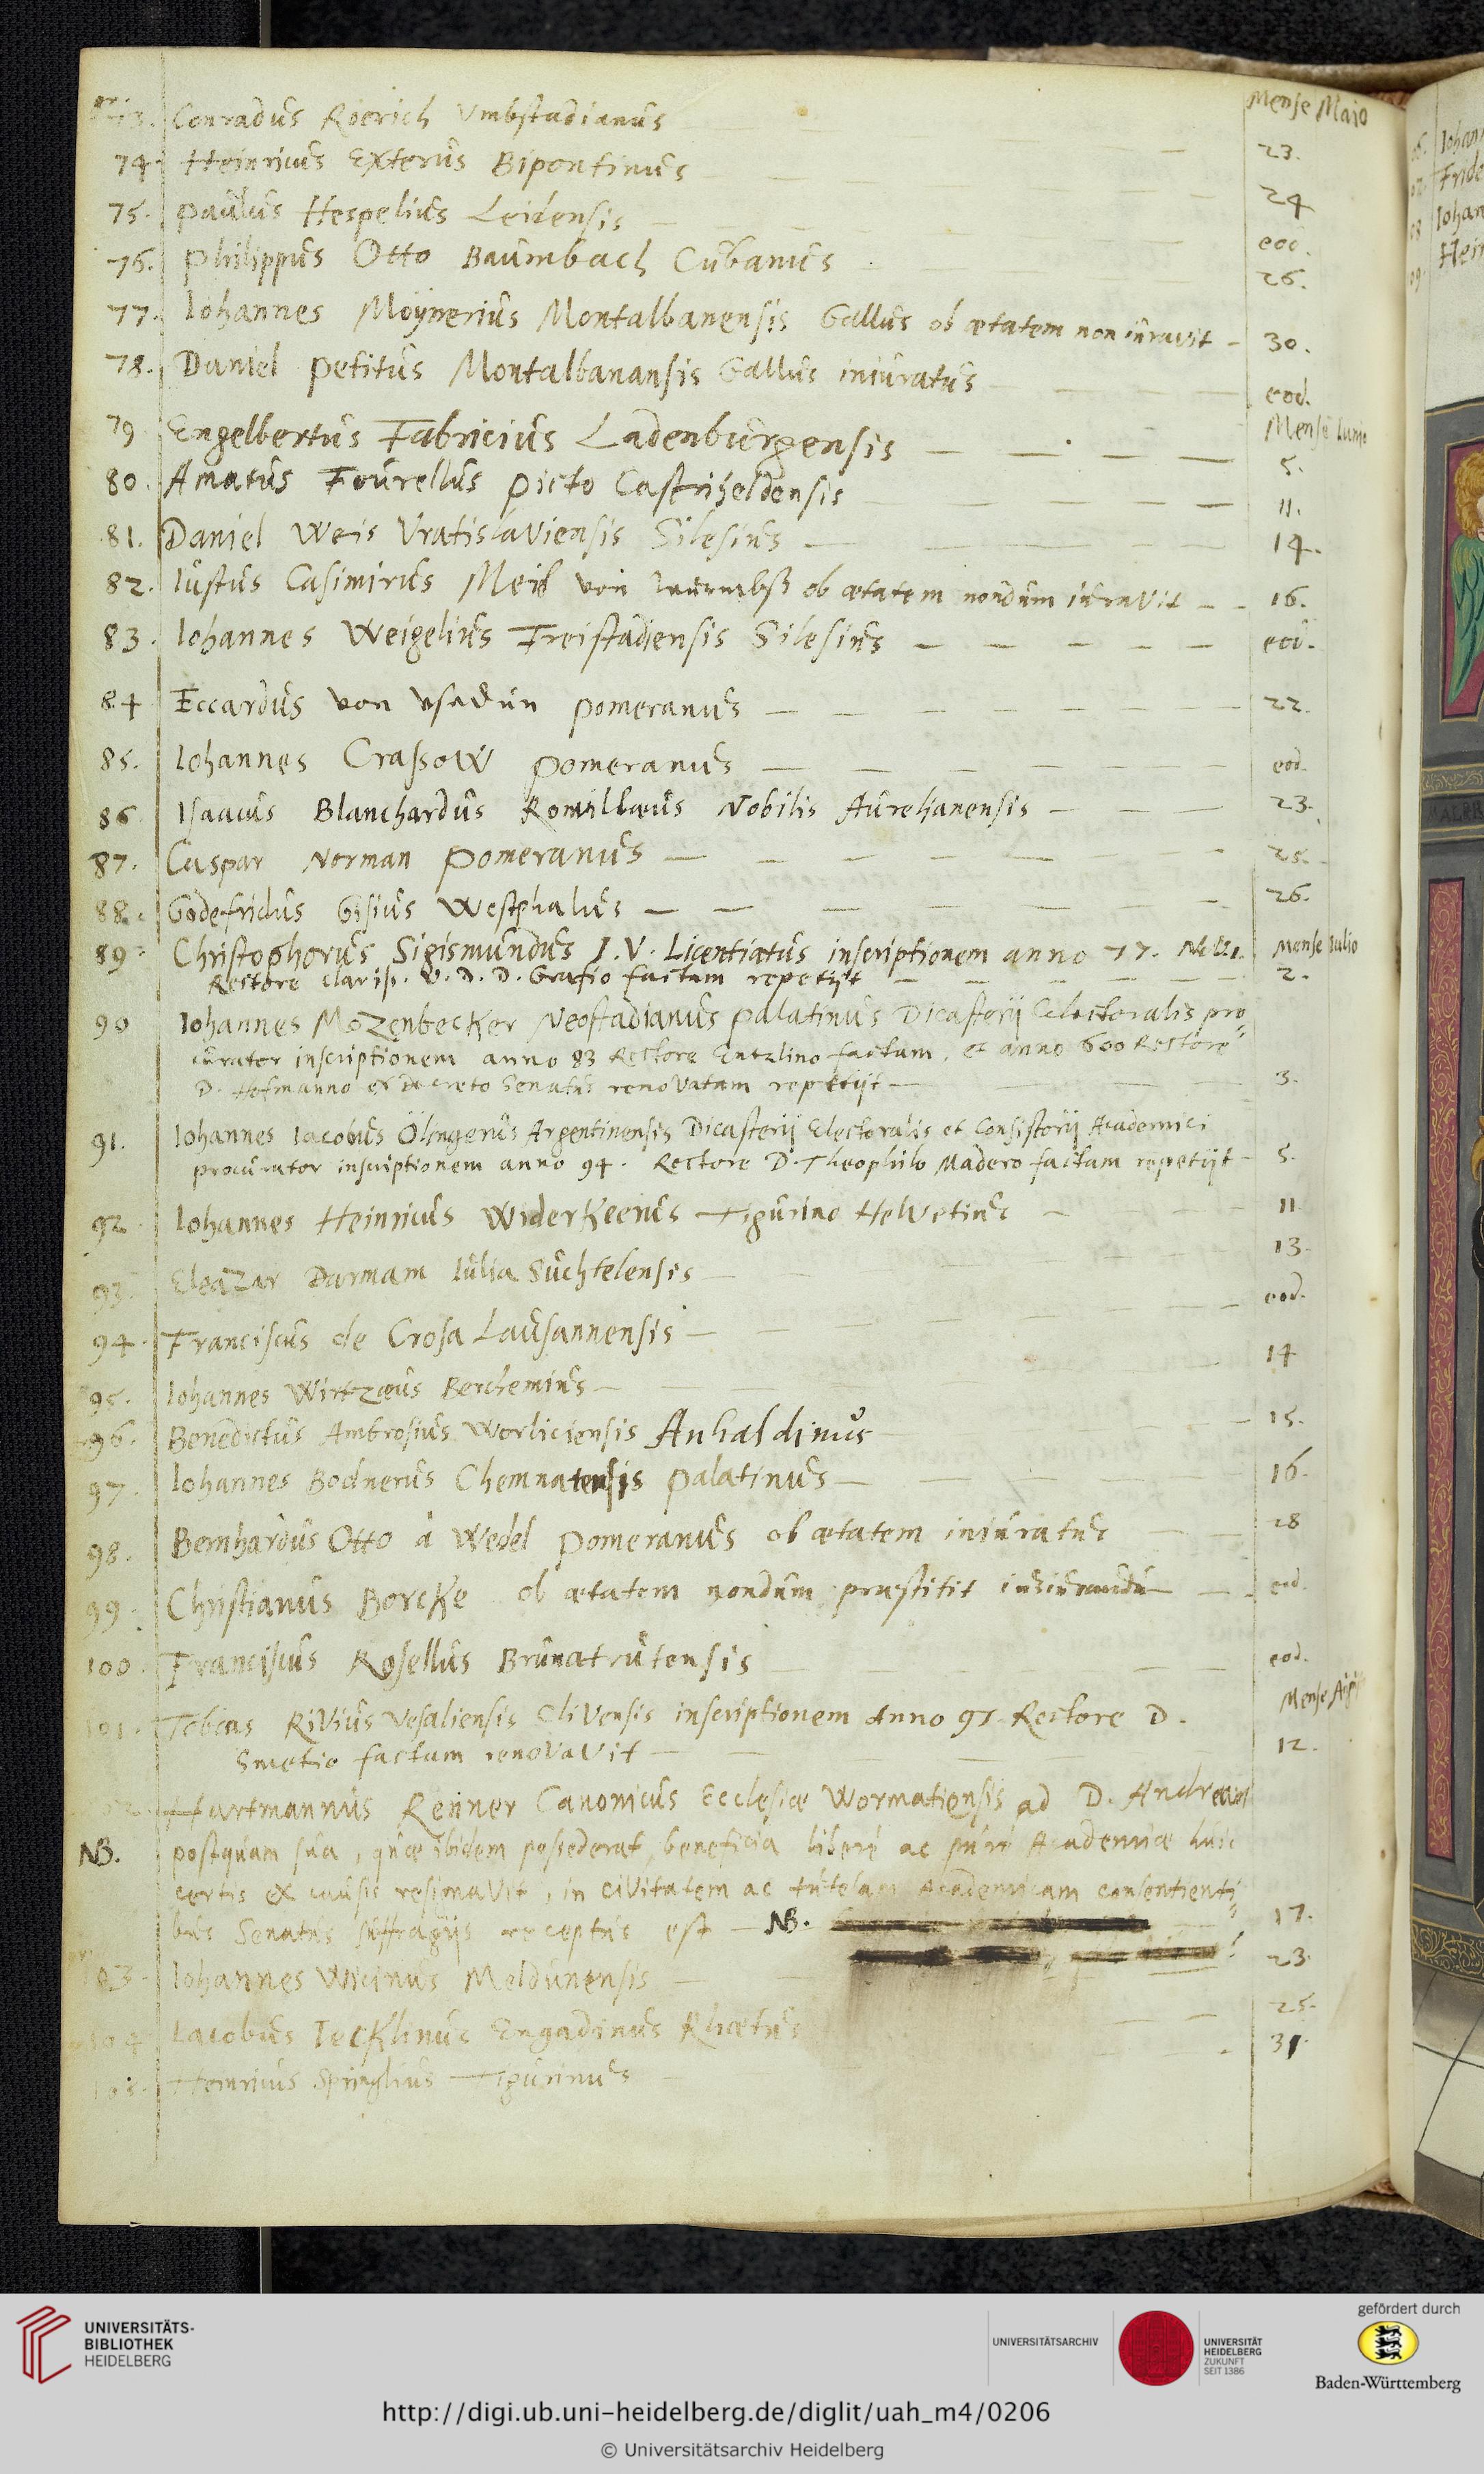 Mense Maio
73. Conradus Roerich Vmbstadianus 23.
74. Heinricus Exterus Bipontinus 24
75. Paulus Hespelius Leidensis eod.
76. Philippus Otto Baumbach Cubanus 26.
77. Iohannes Moÿnerius Montalbanensis Gallus ob ætatem non iuravit 30.
78. Daniel Petitus Montalbanansis Gallus iniuratus eod.
Mense Iunio
79 Engelbertus Fabricius Ladenburgensis 5.
80. Amatus Fourellus Picto Castriheldensis 11.
81. Daniel Weis Vratislaviensis Silesius 14.
82. Iustus Casimirus Meil von ob ætatem nondum iuravit 16.
83. Iohannes Weigelius Freistadiensis Silesius eod.
84 Eccardus von Vsedun Pomeranus 22.
85. Iohannes Crassow Pomeranus eod.
86 Isaacus Blanchardus Romillæus Nobilis Aurelianensis 23.
87. Caspar Norman Pomeranus 25.
88. Godefridus Gisius Westphalus 26.
89 Christophorus Sigismundus I.V. Licentiatus inscriptionem anno 77. Mense Iulio
Rectore clariss. V. D. D. Grafio factam repetijt 2.
90 Iohannes Mozenbecker Neostadianus Palatinus Dicasterij Electoralis pro=
curator inscriptionem anno 83 Rectore Entzlino factam, et anno 600 Rectore
D. Hofmanno ex decreto Senatus renovatam repetijt 3.
91. Iohannes Iacobus Ölingerus Argentinensis Dicasterij Electoralis et Consistorij Academici
procurator inscriptionem anno 94. Rectore D. Theophilo Madero factam repetijt 5.
92 Iohannes Heinricus Widerkeerus Tigurino Helvetius 11
93. Eleazar Darmam Iulia Suchtelensis 13.
94. Franciscus de Crosa Lausannensis eod.
95. Iohannes Wirtzæus Berchemius 14
96. Benedictus Ambrosius Worliciensis Anhaldinus 15.
97. Iohannes Bodnerus Chemnatensis Palatinus 16.
98. Bernhardus Otto à Wedel Pomeranus ob ætatem iniuratus 28
99. Christianus Borcke ob ætatem nondum præstitit iusiurandū eod.
100. Franciscus Rosellus Brunatrutensis eod.
101. Tobias Rivius Vesaliensis Clivensis inscriptionem Anno 91 Rectore D. Mense
Smetio factam renovavit 12.
Hartmannus Renner Canonicus Ecclesiæ Wormatiensis ad D. Andream
NB. postquam sua, quæ ibidem possederat, beneficia liberè ac purè Academiæ huic
certis ex causis resignavit, in civitatem ac tutelam Academicam consentienti=
bus Senatus suffragijs receptus est NB. 17.
103. Iohannes Wicinus Meldunensis 23.
104 Iacobus Iecklinus Engadinus Rhætus 25.
105. Heinricus Springlius Tigurinus 31.
Iohan
Fride
Iohan
Hein
UNIVERSITÄTS-
BIBLIOTHEK
HEIDELBERG
UNIVERSITÄTSARCHIV
UNIVERSITÄT
HEIDELBERG
ZUKUNFT
SEIT 1386
gefördert durch
Baden-Württemberg
http://digi.ub.uni-heidelberg.de/diglit/uah_m4/0206
© Universitätsarchiv Heidelberg